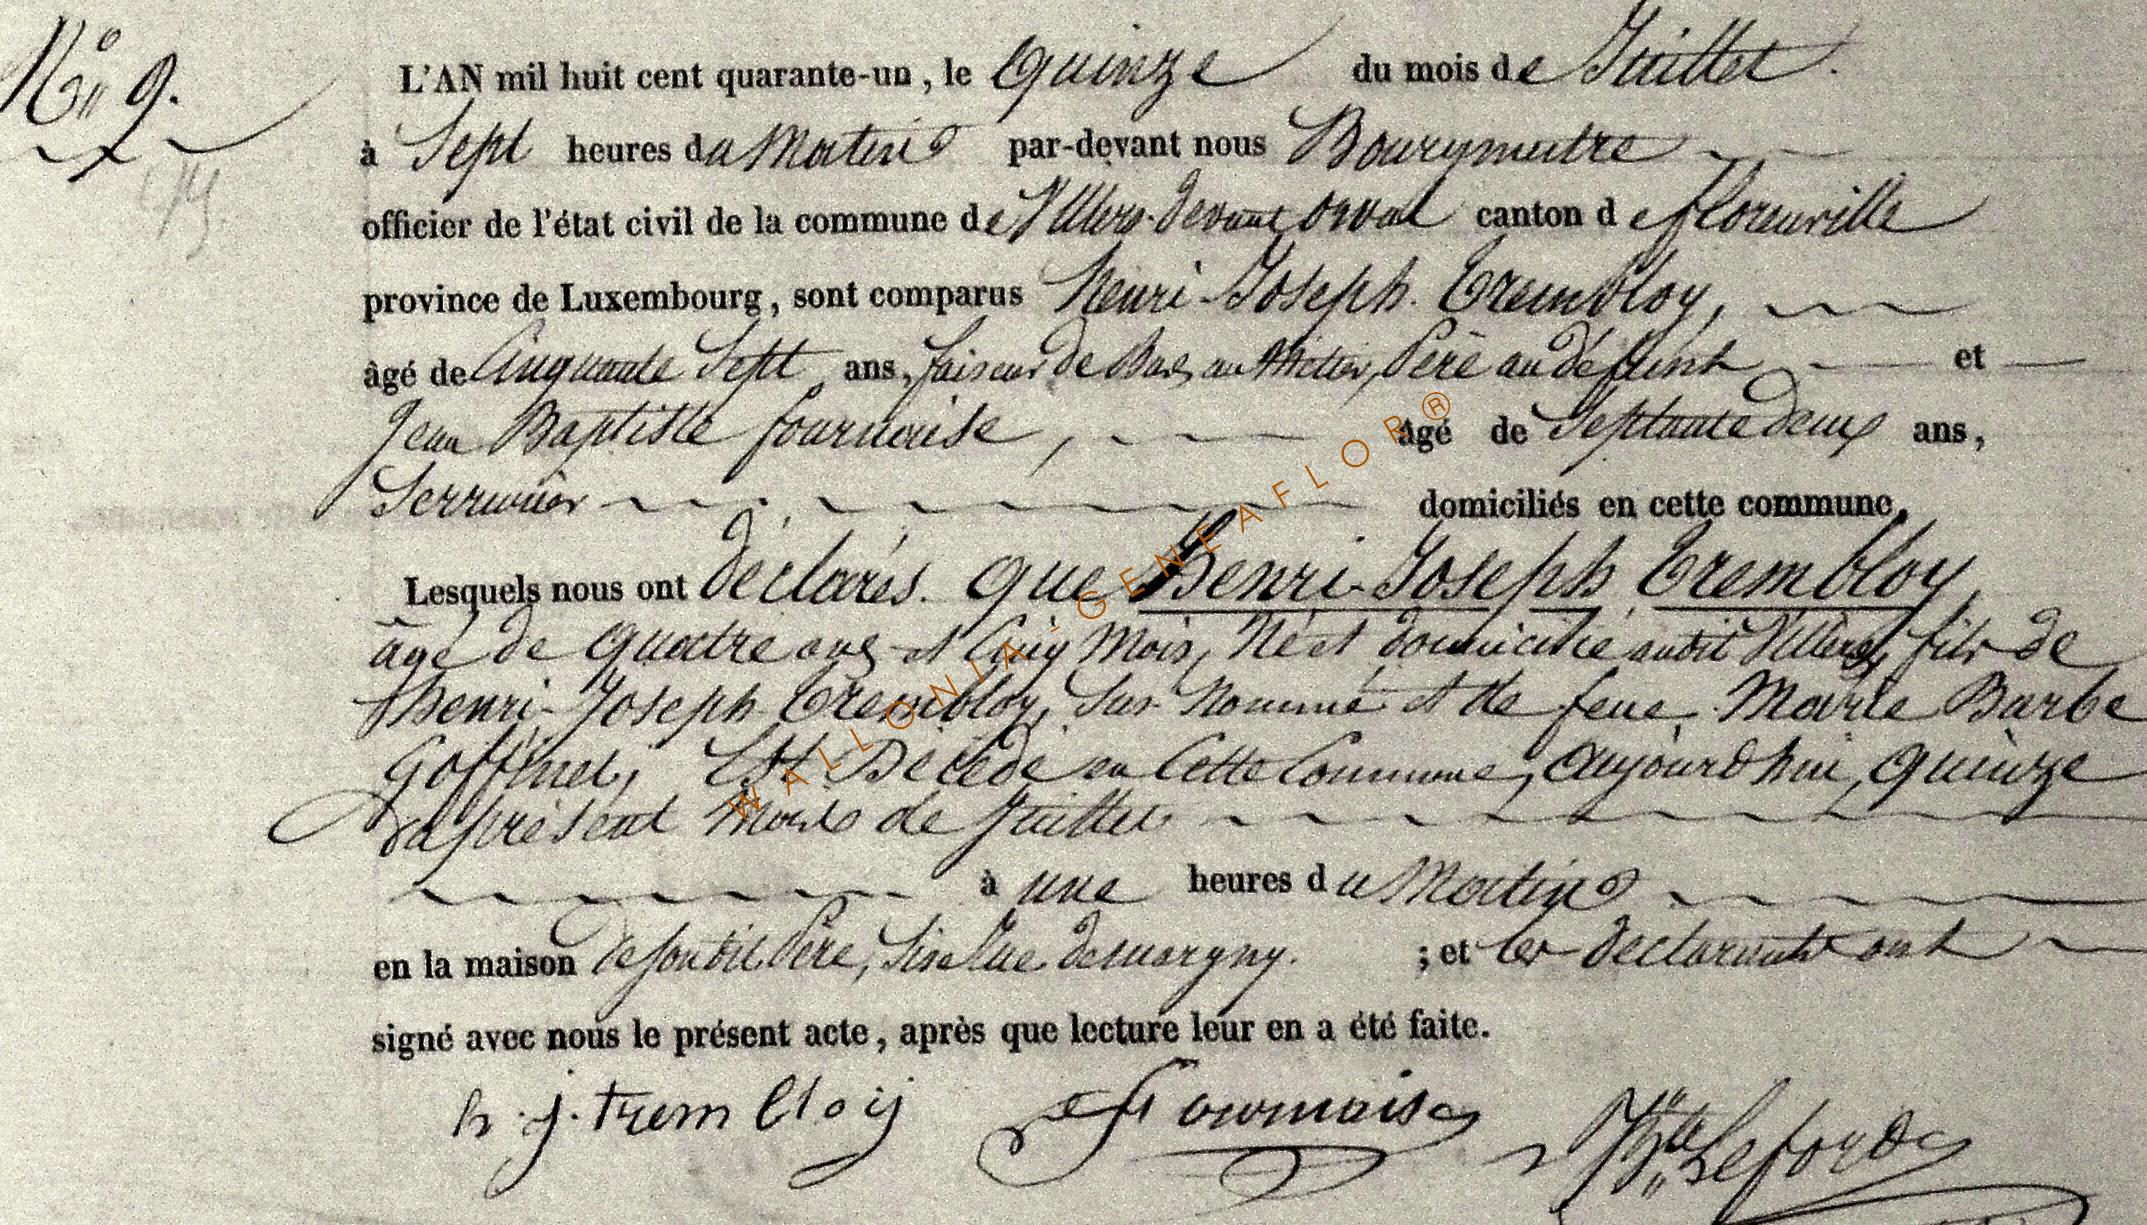 N° 9.
L'AN mil huit cent quarante-un, le Quinze du mois de Juillet.
à Sept heures du Matin par-devant nous Bourgmestre
officier de l'état civil de la commune de Villers-devant orval canton de florenville
province de Luxembourg, sont comparus Henri-Joseph Trembloy,
âgé de Cinquante Sept ans, faiseur de Bas au Métier, Père au défunt et
Jean Baptiste fournaise, âgé de Septante deux ans,
Serrurier domiciliés en cette commune.
Lesquels nous ont déclarés que Henri-Joseph Trembloy,
âgé de quatre ans et Cinq Mois, Né et domicilié audit Villers, fils de
henri-Joseph Trembloy, Sus Nommé et de feue Marie Barbe
Goffinet, Est Décédé en Cette Commune, aujourdhui, quinze
du présent Mois de Juillet
à une heures du Matin
en la maison de son dit Père, Sise Rue demargny. ; et les declarants ont
signé avec nous le présent acte, après que lecture leur en a été faite.
h. j. trembloij Fournaise
WALLONIA-GENEAFLOR®